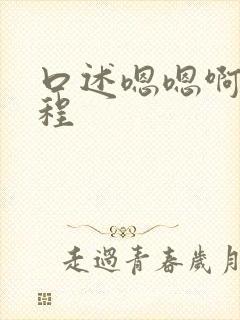 口述嗯嗯啊
程
走過青春歲月